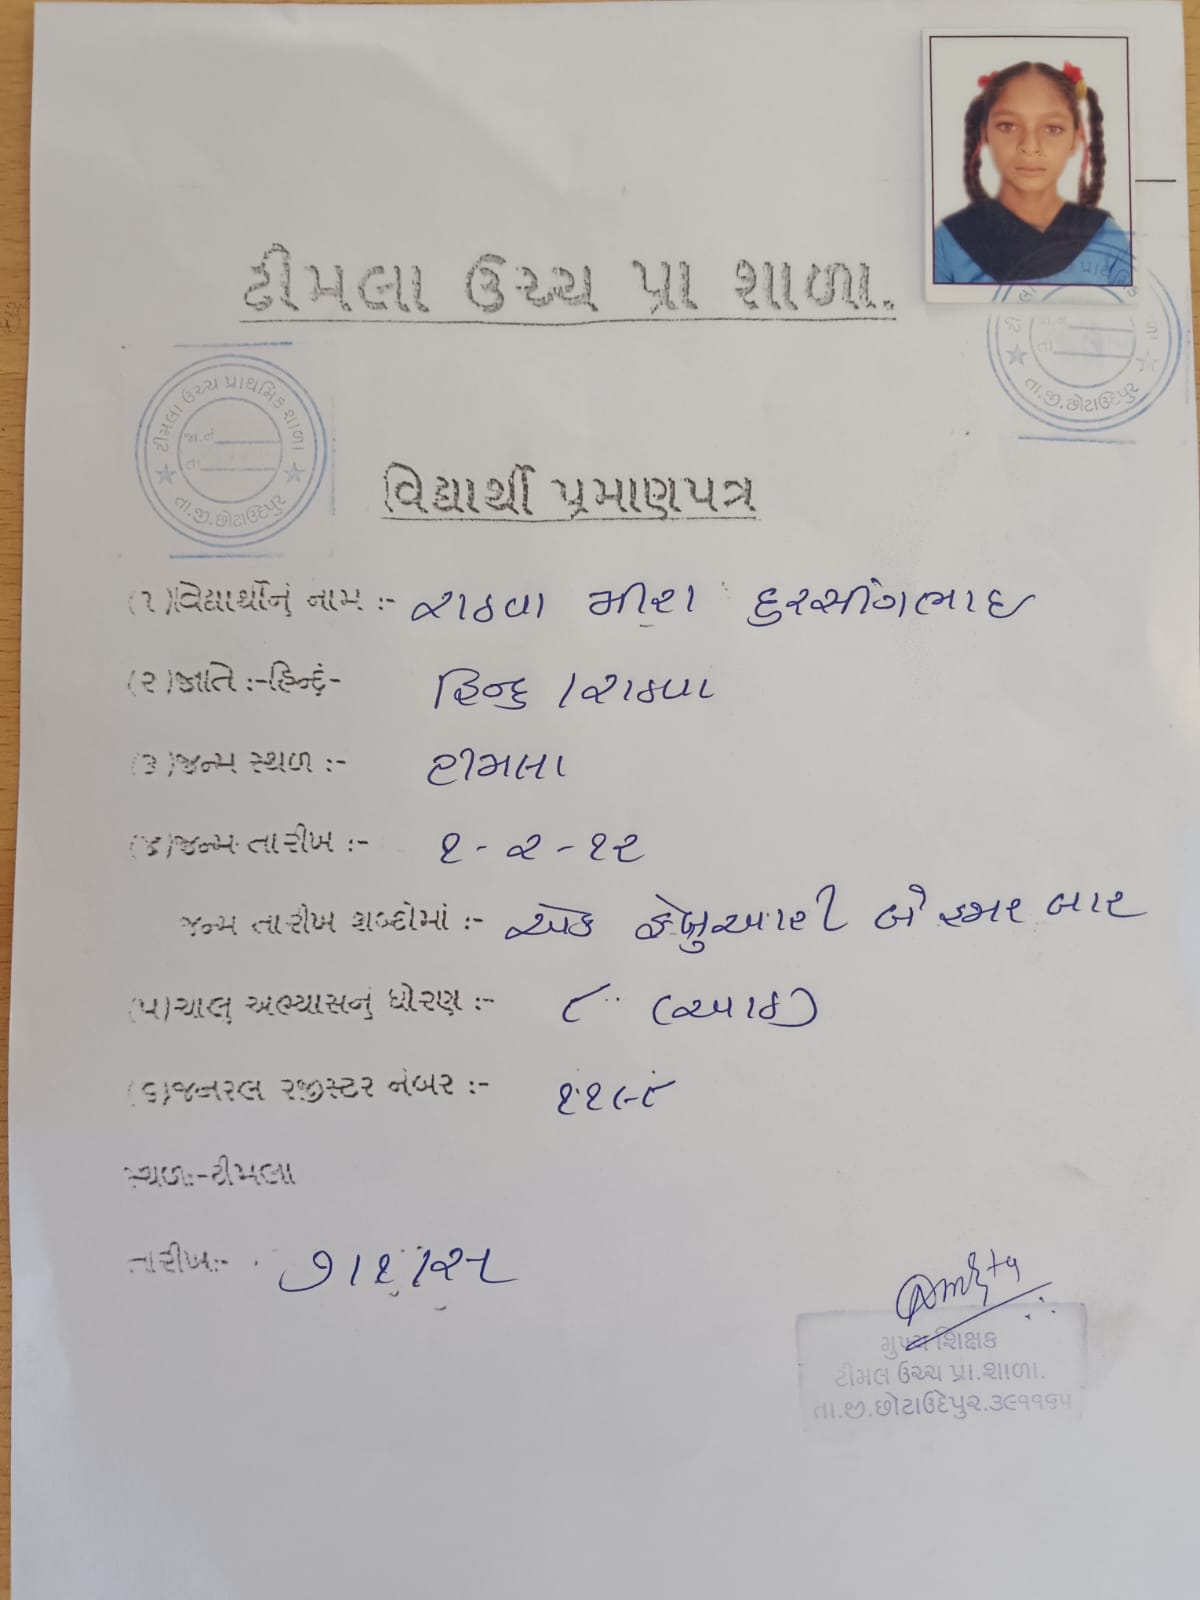 ટીમલા ઉચ્ચ પ્રા શાળા.
ટીમલા ઉચ્ચ પ્રાથમિક શાળા
જા.નં
તા
તા.જી.છોટાઉદેપુર
જા.નં
તા
તા.જી.છોટાઉદેપુર
વિદ્યાર્થી પ્રમાણપત્ર
(૧)વિદ્યાર્થીનું નામ :- રાઠવા મીરા દુરસીંગભાઇ
(૨)જાતિ :-હિન્દું- હિન્દુ /રાઠવા
(૩)જન્મ સ્થળ :- ટીમલા
(૪)જન્મ તારીખ :- ૧-૨-૧૨
જન્મ તારીખ શબ્દોમાં :- એક ફેબ્રુઆરી બે હજાર બાર
(૫)ચાલુ અભ્યાસનું ધોરણ :- ૮ (આઠ)
(૬)જનરલ રજીસ્ટર નંબર :- ૧૧૯૮
સ્થળ:-ટીમલા
તારીખ:- ૭/૧/૨૫
મુખ્ય શિક્ષક
ટીમલ ઉચ્ચ પ્રા.શાળા.
તા.જી.છોટાઉદેપુર.૩૯૧૧૬૫